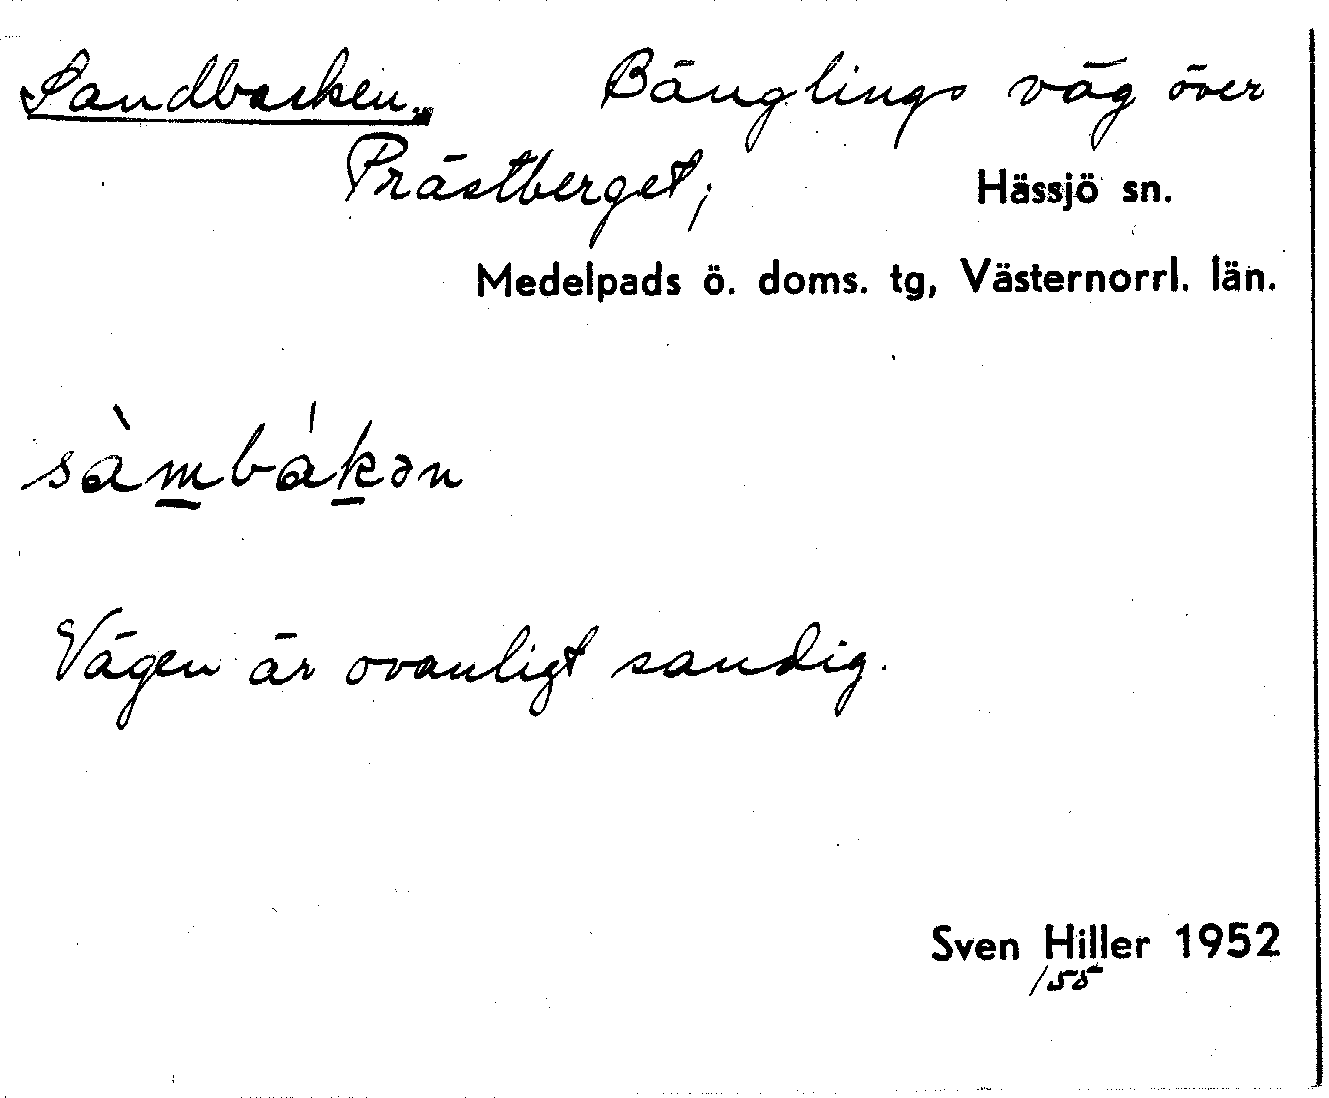 Sandbacken, Bänglings väg över
Prästberget, Hässjö sn.
Medelpads ö. doms. tg, Västernorrl. län.
sàmbákən
Vägen är ovanligt sandig.
Sven Hiller 1952
/55